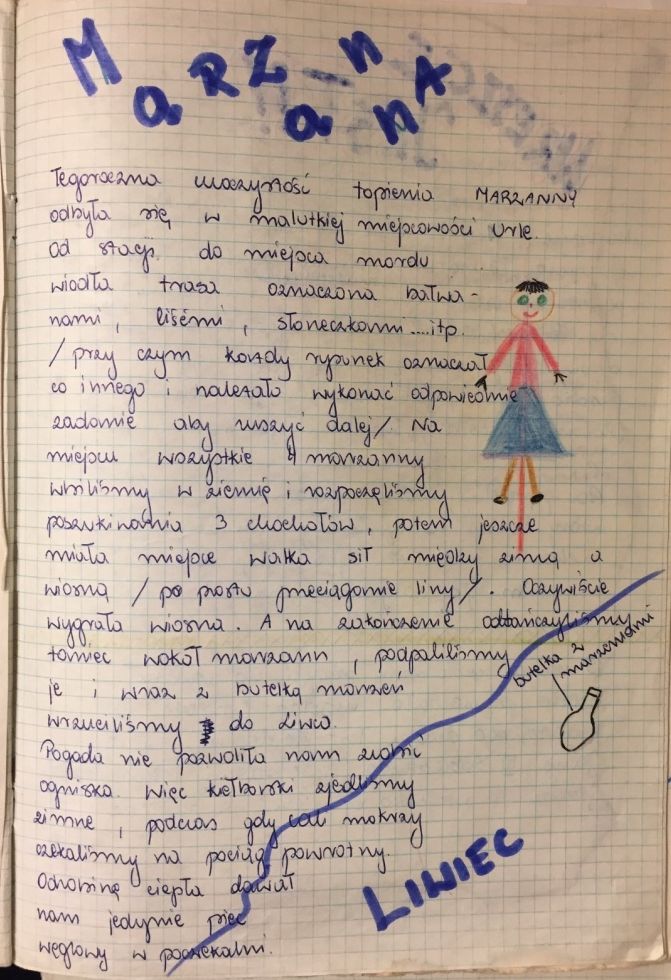 MARZANNA
Tegoroczna uroczystość topienia MARZANNY
odbyła się w malutkiej miejscowości Urle.
Od stacji do miejsca mordu
wiodła trasa oznaczona bałwa-
nami, liśćmi, słoneczkami....itp.
/przy czym każdy rysunek oznaczał
co innego i należało wykonać odpowiednie
zadanie aby ruszyć dalej/ Na
miejscu wszystkie 4 marzanny
wbiliśmy w ziemię i rozpoczęliśmy
poszukiwania 3 chochołów, potem jeszcze
miała miejsce walka sił między zimą a
wiosną /po prostu przeciąganie liny/. Oczywiście
wygrała wiosna. A na zakończenie odtańczyliśmy
taniec wokół marzann, podpaliliśmy
je i wraz z butelką marzeń
wrzuciliśmy do Liwca.
Pogoda nie pozwoliła nam zrobić
ogniska. Więc kiełbaski zjedliśmy
zimne, podczas gdy cali mokrzy
czekaliśmy na pociąg powrotny.
Odrobinę ciepła dawał
nam jedynie piec
węglowy w poczekalni.
butelka z
marzeniami
LIWIEC